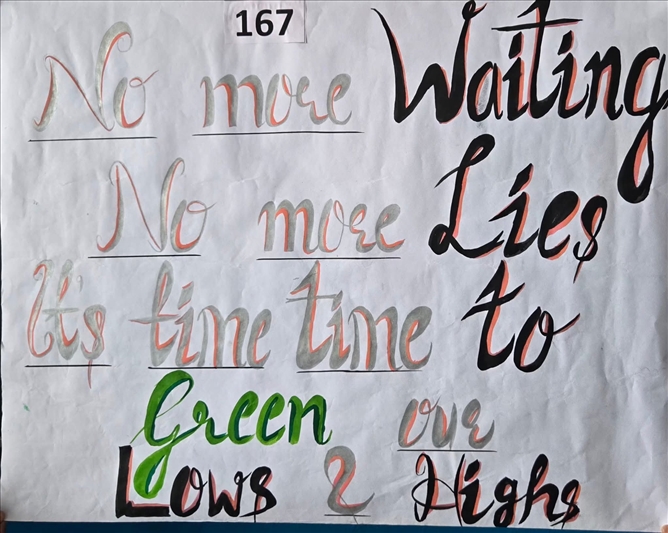 167
No more Waiting
No more Lies
It's time time to
Green our
Lows & Highs